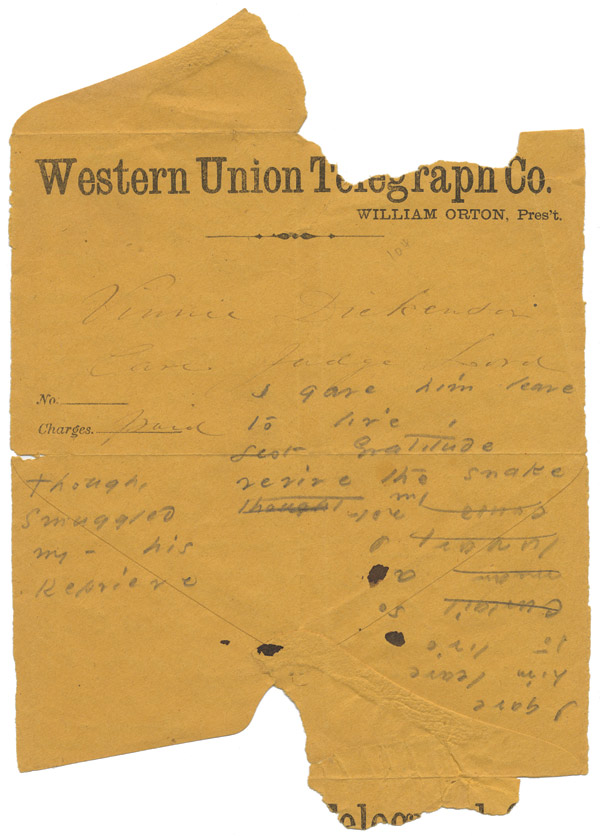 Western Union Telegraph Co.
WILLIAM ORTON, Pres't.
Vinnie Dickenson
Care Judge Lord
No.
Charges. paid
I gave him leave
to live,
lest Gratitude
revive the snake
thought
though,
smuggled
my - his
Reprieve
I gave
him leave
to live
Telegraph